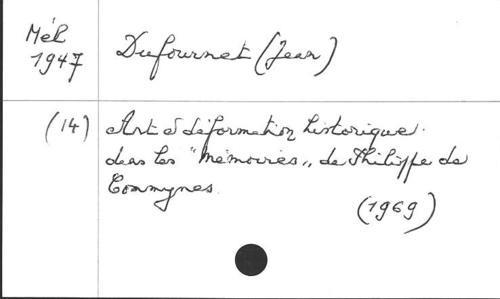 Mél
1947
Dufournet (Jean)
(14)
Art et déformation historique
dans les "Mémoires" de Philippe de
Commynes.
(1969)